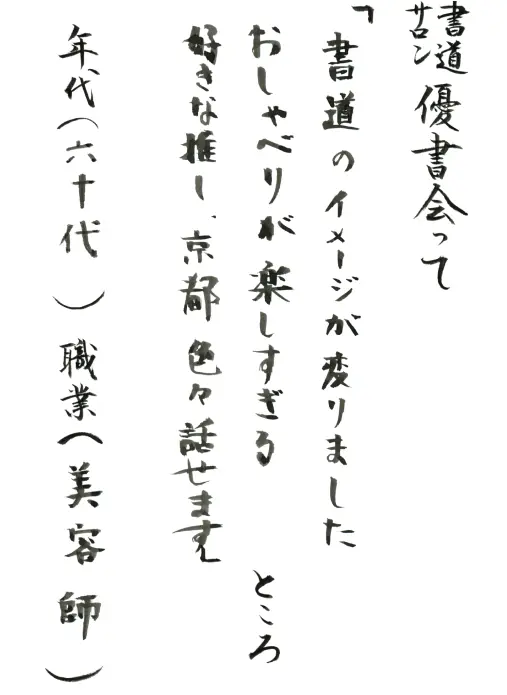 書道サロン 優書会って
「書道のイメージが変りました
おしゃべりが楽しすぎる ところ
好きな推し、京都 色々話せます」
年代（六十代）職業（美容師）